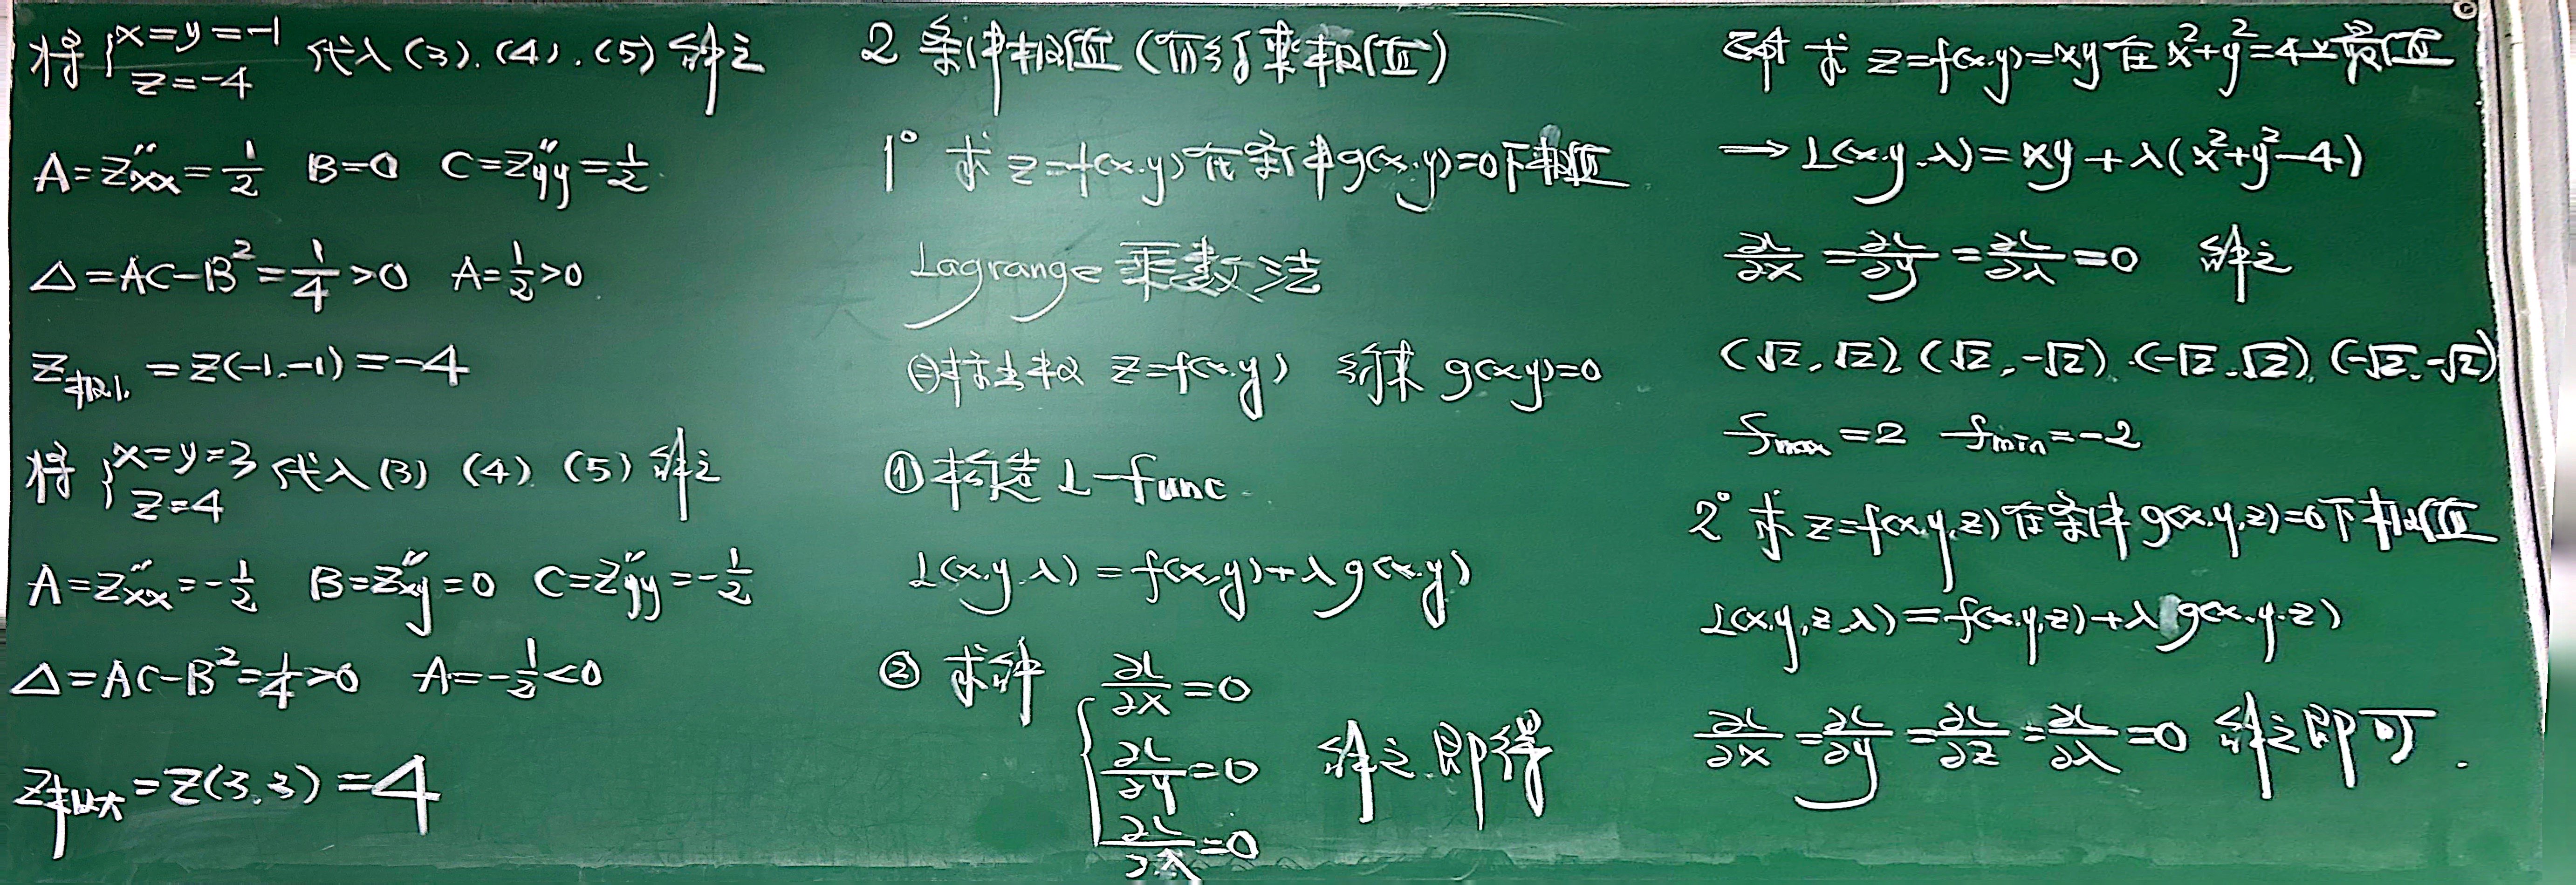 将 { x=y=-1
z=-4 代入(3).(4).(5) 解之
A=Z''xx=1/2 B=0 C=Z''yy=1/2
Δ=AC-B²=1/4>0 A=1/2>0
Z极小=Z(-1,-1)=-4
将 { x=y=3
z=4 代入(3) (4) (5) 解之
A=Z''xx=-1/2 B=Z''xy=0 C=Z''yy=-1/2
Δ=AC-B²=1/4>0 A=-1/2<0
Z极大=Z(3,3)=4
2 条件极值(有约束极值)
1° 求 z=f(x,y) 在条件 g(x,y)=0下极值
Lagrange 乘数法
z=f(x,y) 约束 g(x,y)=0
① 构造 L-func.
L(x,y,λ)=f(x,y)+λg(x,y)
② 求解 { ∂L/∂x=0
∂L/∂y=0 解之即得
∂L/∂λ=0
求 z=f(x,y)=xy 在 x²+y²=4上最值
→ L(x,y,λ)=xy+λ(x²+y²-4)
∂L/∂x=∂L/∂y=∂L/∂λ=0 解之
(√2,√2) (√2,-√2).(-√2,√2).(-√2,-√2)
fmax=2 fmin=-2
2° 求 z=f(x,y,z) 在条件 g(x,y,z)=0下极值
L(x,y,z,λ)=f(x,y,z)+λg(x,y,z)
∂L/∂x=∂L/∂y=∂L/∂z=∂L/∂λ=0 解之即可.